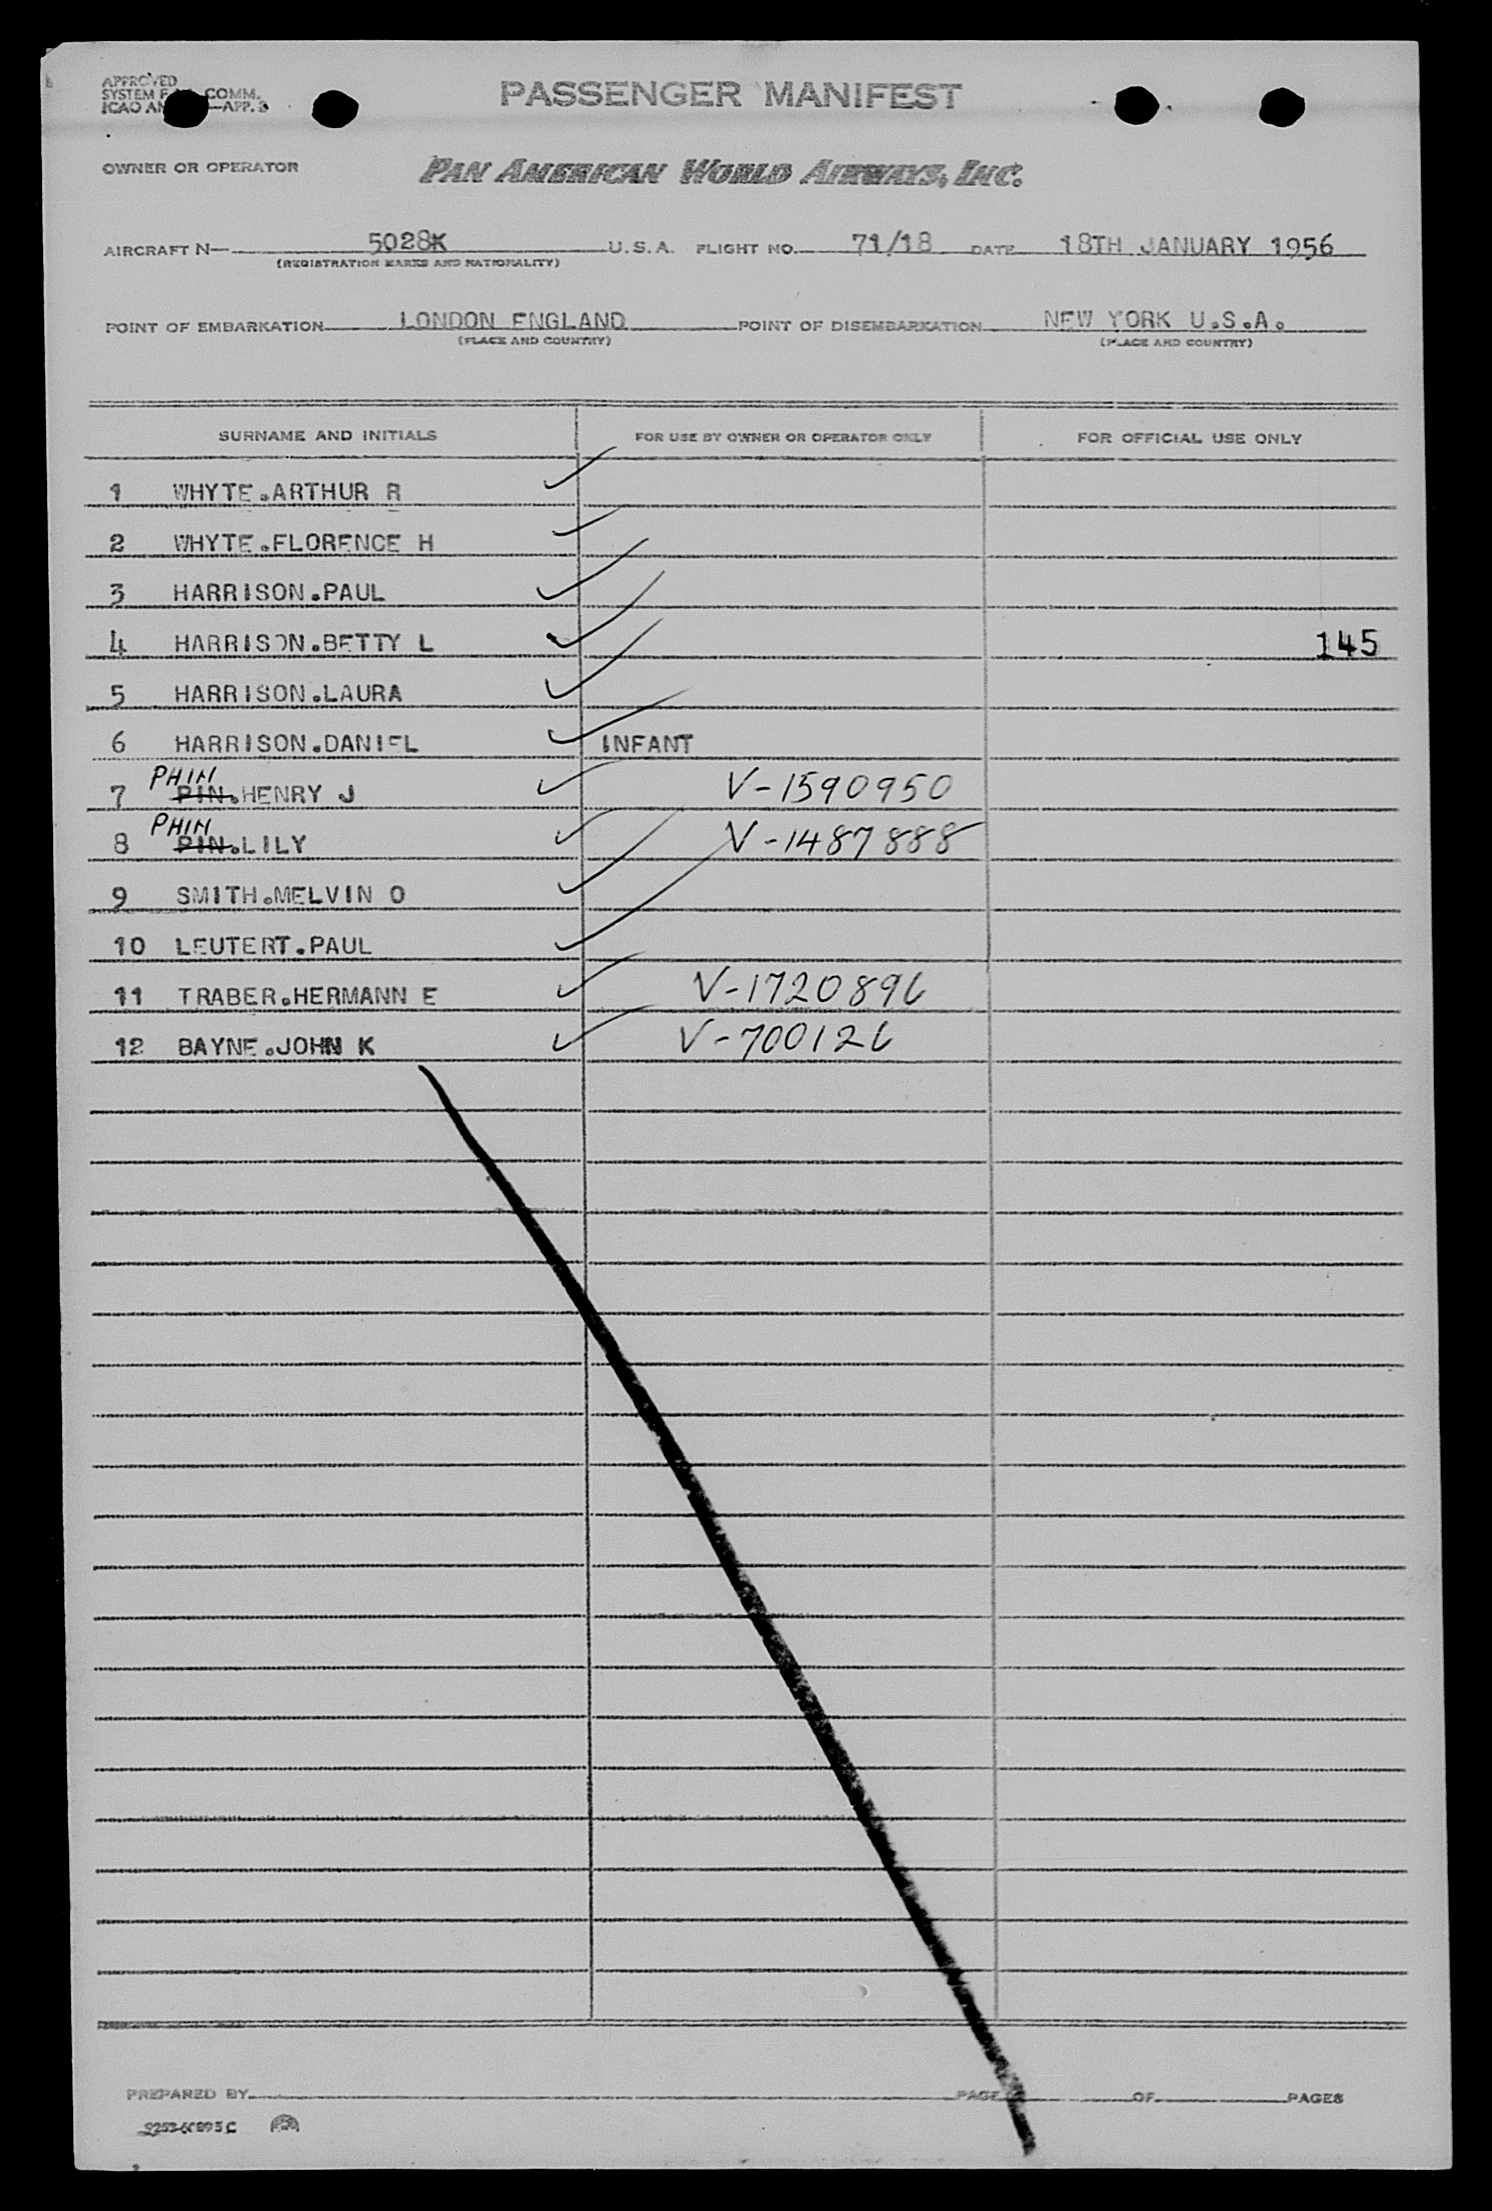 APPROVED
SYSTEM COMM.
ICAO APP. 3
PASSENGER MANIFEST
OWNER OR OPERATOR PAN AMERICAN WORLD AIRWAYS, INC.
AIRCRAFT N— 5028K U.S.A. FLIGHT NO. 71/18 DATE 18TH JANUARY 1956
(REGISTRATION MARKS AND NATIONALITY)
POINT OF EMBARKATION LONDON ENGLAND POINT OF DISEMBARKATION NEW YORK U.S.A.
(PLACE AND COUNTRY) (PLACE AND COUNTRY)
SURNAME AND INITIALS FOR USE BY OWNER OR OPERATOR ONLY FOR OFFICIAL USE ONLY
1 WHYTE.ARTHUR R
2 WHYTE.FLORENCE H
3 HARRISON.PAUL
4 HARRISON.BETTY L 145
5 HARRISON.LAURA
6 HARRISON.DANIEL INFANT
PHIN
7 PIN.HENRY J V-1590950
PHIN
8 PIN.LILY V-1487888
9 SMITH.MELVIN O
10 LEUTERT.PAUL
11 TRABER.HERMANN E V-1720896
12 BAYNE.JOHN K V-700126
PREPARED BY PAGE OF PAGES